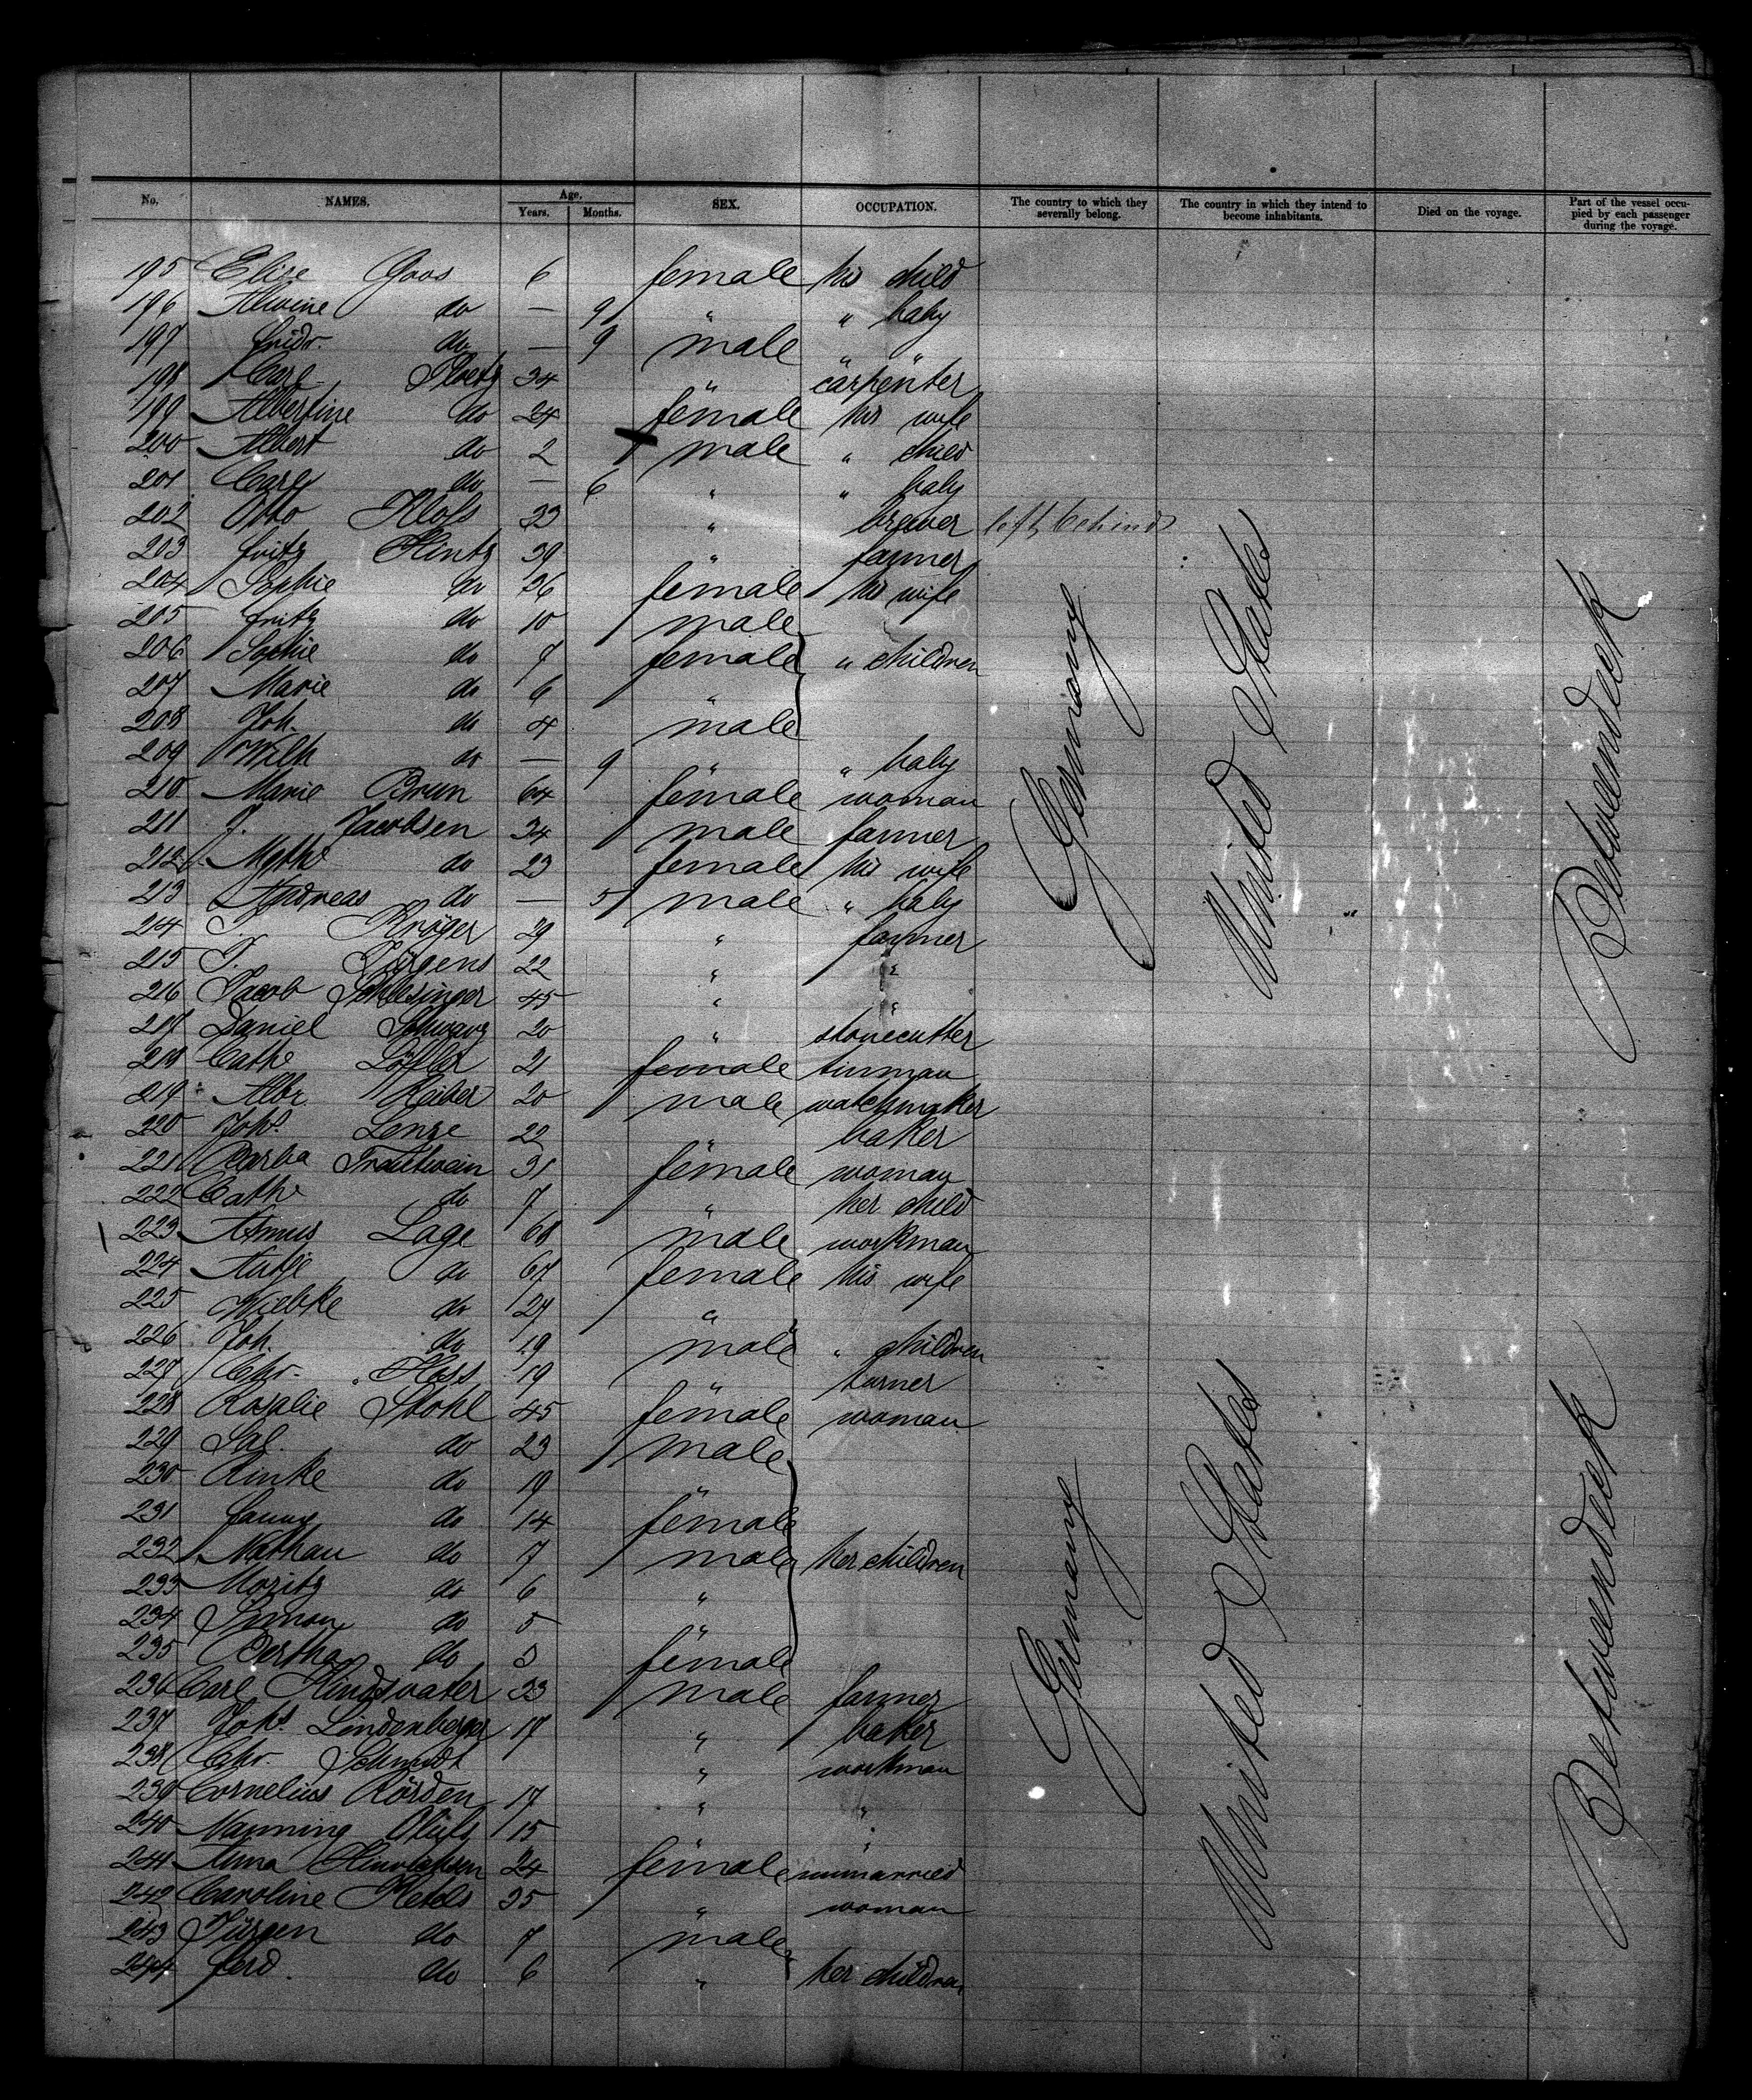 No. NAMES. Age. Years. Months. SEX. OCCUPATION. The country to which they severally belong. The country in which they intend to become inhabitants. Died on the voyage. Part of the vessel occupied by each passenger during the voyage.
195 Elise Goos 6 female his child
196 Alwine do — 9 " " baby
197 Fridr. do — 9 male " "
198 Carl Ploetz 34 " carpenter
199 Albertine do 24 female his wife
200 Albert do 2 male " child
201 Carl do — 6 " " baby
202 Otto Klofs 23 " brewer left behind
203 Fritz Hintz 39 " farmer
204 Sophie do 36 female his wife
205 Fritz do 10 male
206 Sophie do 7 female " children
207 Marie do 6 "
208 Joh. do 4 male
209 Wilh do — 9 " " baby
210 Marie Brun 64 female woman
211 J. Jacobsen 34 male farmer
212 do 23 female his wife
213 Andreas do — 5 male " baby
214 Kröger 29 " farmer
215 Jürgens 22 " "
216 Jacob Schlesinger 45 " "
217 Daniel Schwarz 20 " stonecutter
218 Cathe Löffler 21 female tinman
219 Albr. Reiber 20 male watchmaker
220 Johs. Lenze 22 " baker
221 Barba Trautwein 31 female woman
222 Cathe do 7 " her child
223 Asmus Lage 68 male workman
224 Antje do 67 female his wife
225 Wiebke do 27 "
226 Joh. do 19 male " children
227 Chr. Hess 19 " turner
228 Rosalie Stohl 45 female woman
229 Sal. do 23 male
230 Rinke do 19 "
231 Fanny do 14 female
232 Nathan do 7 male her children
233 Moritz do 6 "
234 Simon do 5 "
235 Bertha do 3 female
236 Carl Kindsvater 23 male farmer
237 Johs. Lindenberger 17 " baker
238 Chr. Schmidt " workman
239 Cornelius Rörden 17 " "
240 Nanning Olufs 15 "
241 Anna Hinrichsen 24 female unmarried
242 Caroline Ketels 35 " woman
243 Jürgen do 7 male
244 Ferd. do 6 " her children
Germany United States Betweendeck
Germany United States Betweendeck